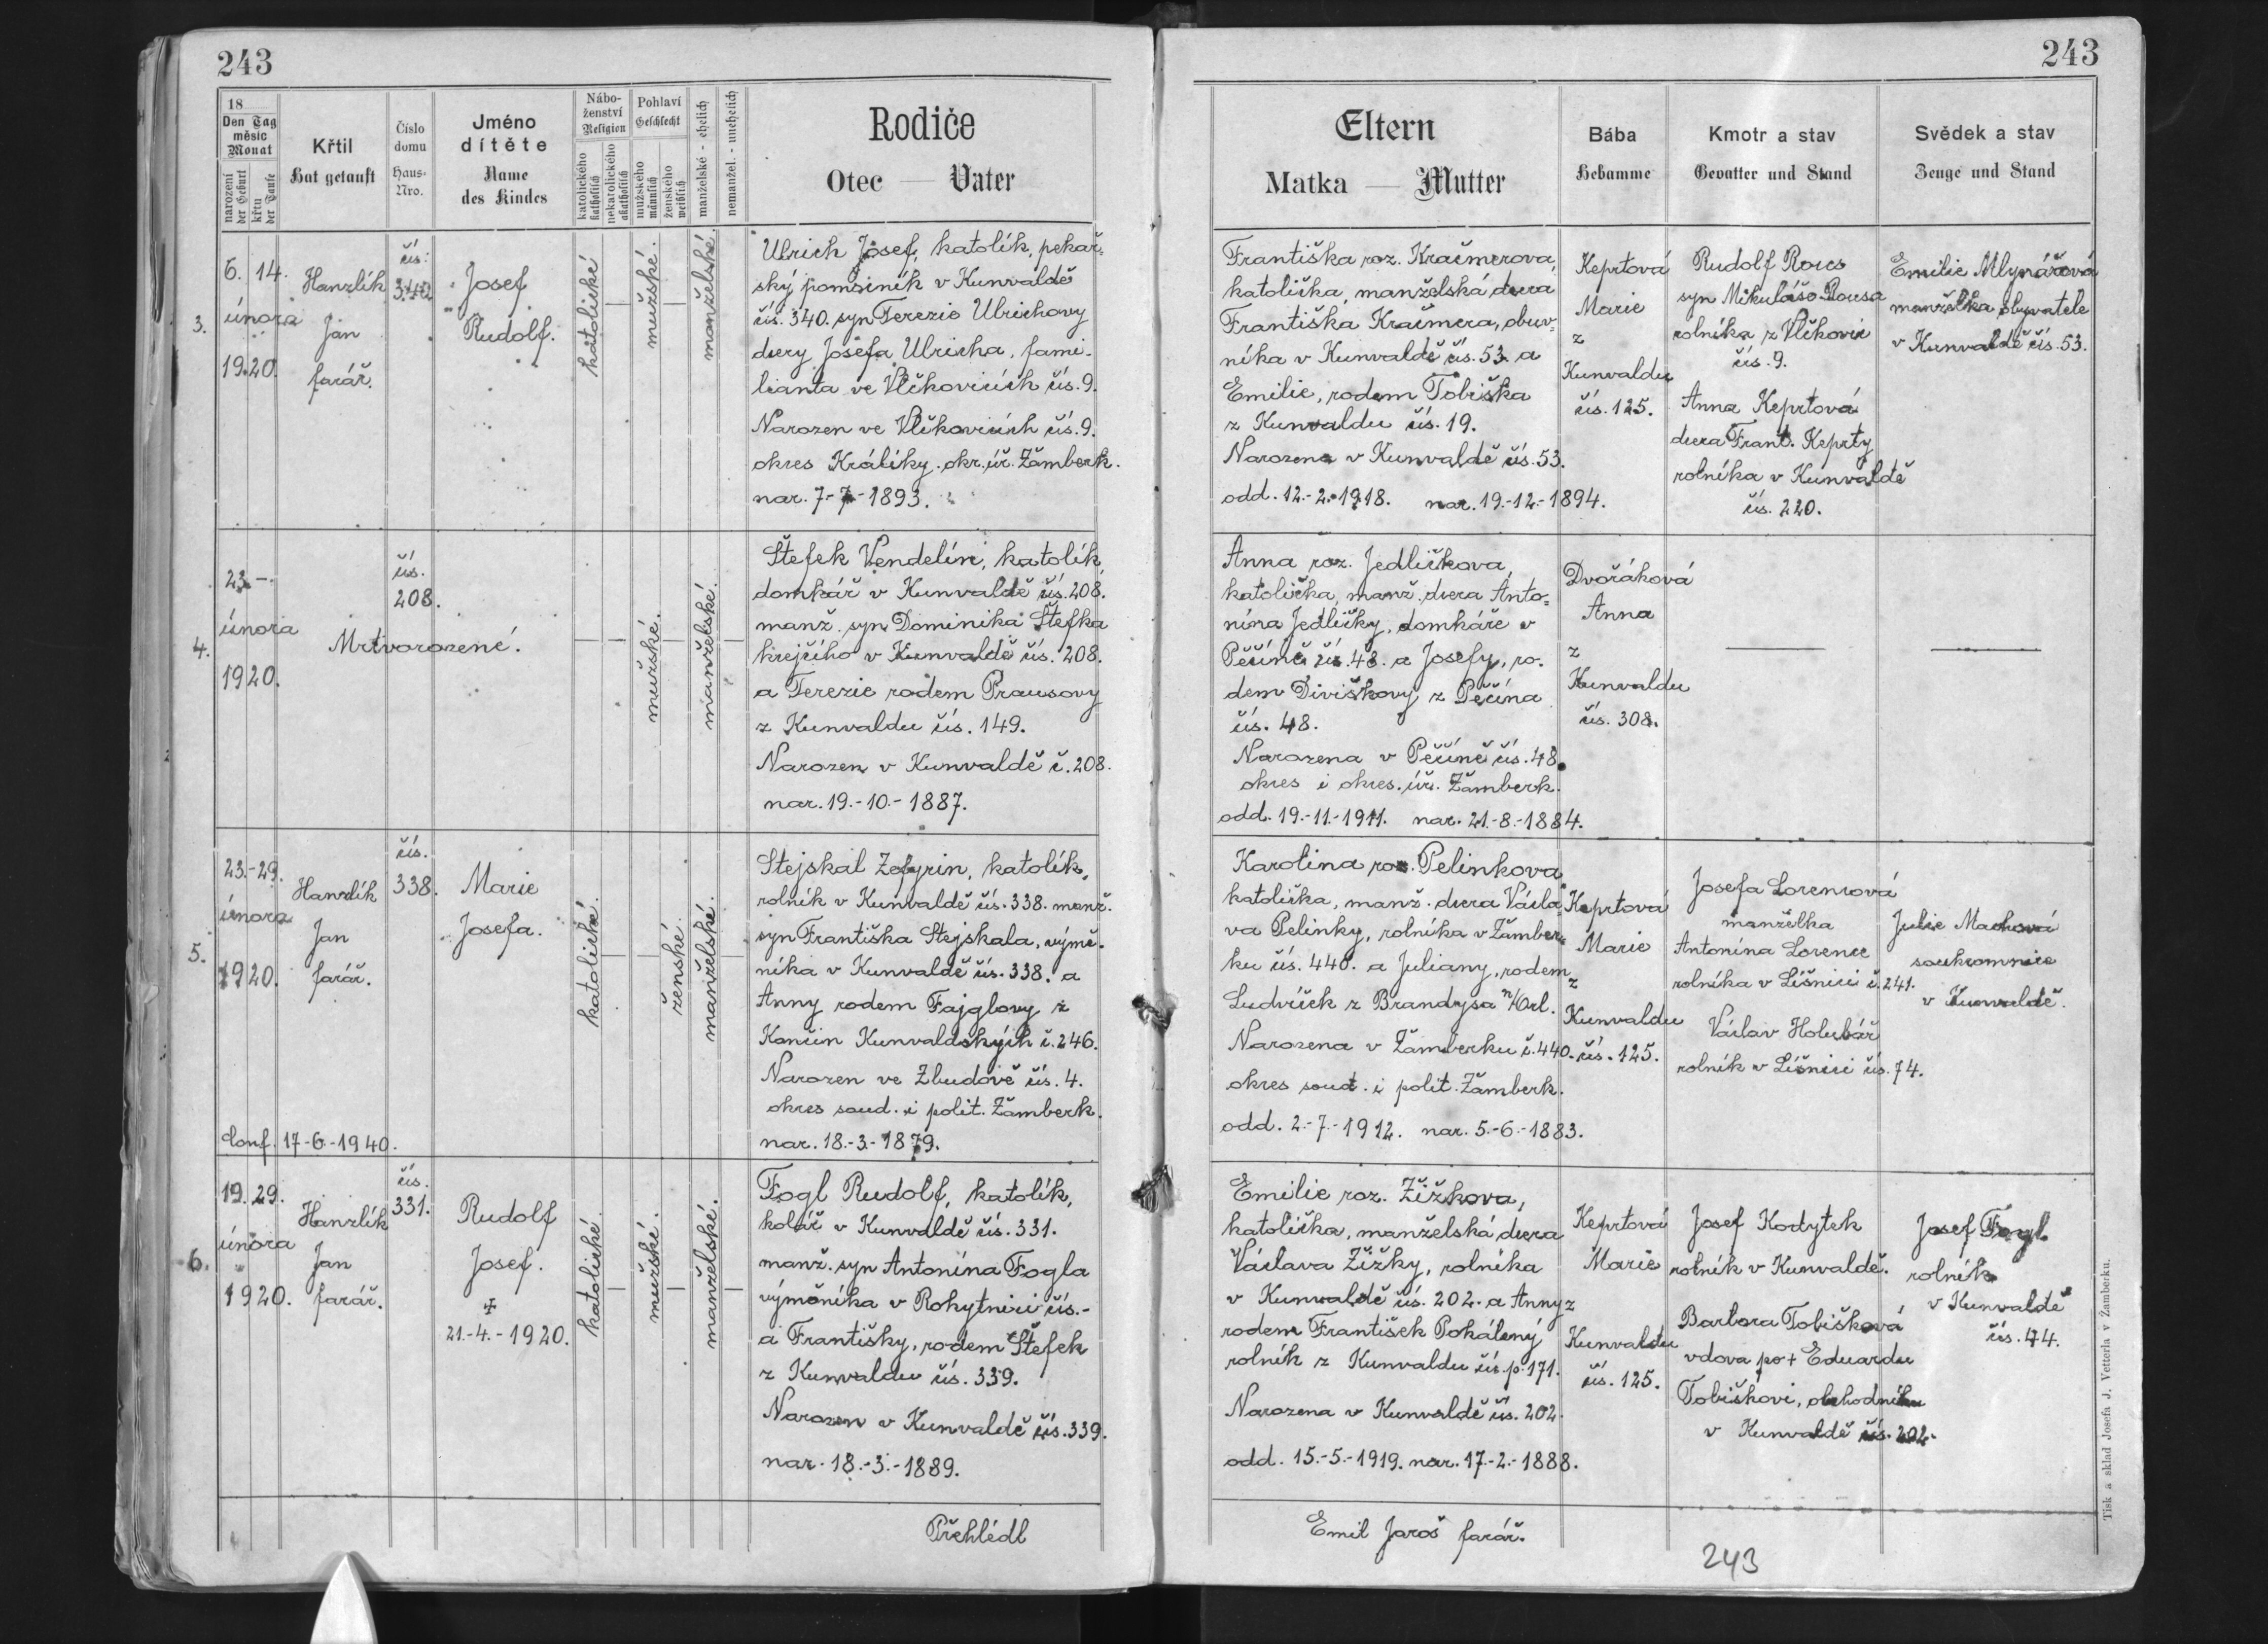 243
243
18
Den Tag
měsíc
Monat
narození
der Geburt
křtu
der Taufe
Křtil
Hat getauft
Číslo
domu
Haus-
Nro.
Jméno
dítěte
Name
des Kindes
Nábo-
ženství
Religion
katolického
katholisch
nekatolického
akatholisch
Pohlaví
Geschlecht
mužského
männlich
ženského
weiblich
manželské - ehelich
nemanžel. - unehelich
Rodiče
Otec — Vater
Eltern
Matka — Mutter
Bába
Hebamme
Kmotr a stav
Gevatter und Stand
Svědek a stav
Zeuge und Stand
3.
6. 14.
února
1920.
Hanzlík
Jan
farář.
čís.
340
Josef
Rudolf.
katolické
mužské.
manželské.
Ulrich Josef, katolík, pekař-
ský pomocník v Kunvaldě
čís. 340. syn Terezie Ulrichovy
dcery Josefa Ulricha, fami-
lianta ve Vlčkovicích čís. 9.
Narozen ve Vlčkovicích čís. 9.
okres Králíky. okr. úř. Žamberk.
nar. 7-7-1893.
Františka roz. Kračmerova,
katolička, manželská dcera
Františka Kračmera, obuv-
níka v Kunvaldě čís. 53. a
Emilie, rodem Tobiška
z Kunvaldu čís. 19.
Narozena v Kunvaldě čís. 53.
odd. 12.-2.-1918. nar. 19.-12.-1894.
Keprtová
Marie
z
Kunvaldu
čís. 125.
Rudolf Rous
syn Mikuláše Rousa
rolníka z Vlčkovic
čís. 9.
Anna Keprtová
dcera Frant. Keprty
rolníka v Kunvaldě
čís. 220.
Emilie Mlynářová
manželka obyvatele
v Kunvaldě čís. 53.
4.
23.-
února
1920.
Mrtvorozené.
čís.
208.
mužské.
manželské.
Štefek Vendelín, katolík,
domkář v Kunvaldě čís. 208.
manž. syn Dominika Štefka
krejčího v Kunvaldě čís. 208.
a Terezie rodem Prausovy
z Kunvaldu čís. 149.
Narozen v Kunvaldě č. 208.
nar. 19.-10.-1887.
Anna roz. Jedličkova,
katolička, manž. dcera Anto-
nína Jedličky, domkáře v
Pěčíně čís. 48. a Josefy, ro-
dem Divíškovy z Pěčína
čís. 48.
Narozena v Pěčíně čís. 48.
okres i okres. úř. Žamberk.
odd. 19.-11.-1911. nar. 21.-8.-1884.
Dvořáková
Anna
z
Kunvaldu
čís. 308.
5.
23.-29.
února
1920.
Hanzlík
Jan
farář.
čís.
338.
Marie
Josefa.
katolické.
ženské.
manželské.
Stejskal Zefyrin, katolík,
rolník v Kunvaldě čís. 338. manž.
syn Františka Stejskala, výmě-
níka v Kunvaldě čís. 338. a
Anny rodem Fajglovy z
Končin Kunvaldských č. 246.
Narozen ve Zbudově čís. 4.
okres soud. i polit. Žamberk.
nar. 18.-3.-1879.
Conf. 17-6.-1940.
Karolina roz. Pelinkova
katolička, manž. dcera Václa-
va Pelinky, rolníka v Žamber-
ku čís. 440. a Juliany, rodem
Ludvíček z Brandysa n/Orl.
Narozena v Žamberku č. 440.
okres soud. i polit. Žamberk.
odd. 2.-7.-1912. nar. 5.-6.-1883.
Keprtová
Marie
z
Kunvaldu
čís. 125.
Josefa Lorencová
manželka
Antonína Lorence
rolníka v Líšnici č. 241.
Václav Holubář
rolník v Líšnici čís. 74.
Julie Machová
soukromnice
v Kunvaldě.
6.
19. 29.
února
1920.
Hanzlík
Jan
farář.
čís.
331.
Rudolf
Josef.
✝
21.-4.-1920.
katolické.
mužské.
manželské.
Fogl Rudolf, katolík,
kolář v Kunvaldě čís. 331.
manž. syn Antonína Fogla
výměníka v Rokytnici čís.-
a Františky, rodem Štefek
z Kunvaldu čís. 339.
Narozen v Kunvaldě čís. 339.
nar. 18.-3.-1889.
Emilie roz. Žižkova,
katolička, manželská dcera
Václava Žižky, rolníka
v Kunvaldě čís. 202. a Anny
rodem František Pokálený
rolník z Kunvaldu čís. p. 171.
Narozena v Kunvaldě čís. 202.
odd. 15.-5.-1919. nar. 17.-2.-1888.
Keprtová
Marie
z
Kunvaldu
čís. 125.
Josef Kodytek
rolník v Kunvaldě.
Barbora Tobišková
vdova po † Eduardu
Tobiškovi, obchodníku
v Kunvaldě čís. 202.
Josef Fogl
rolník
v Kunvaldě
čís. 44.
Přehlédl
Emil Jaroš farář.
243
Tisk a sklad Josefa J. Vetterla v Žamberku.